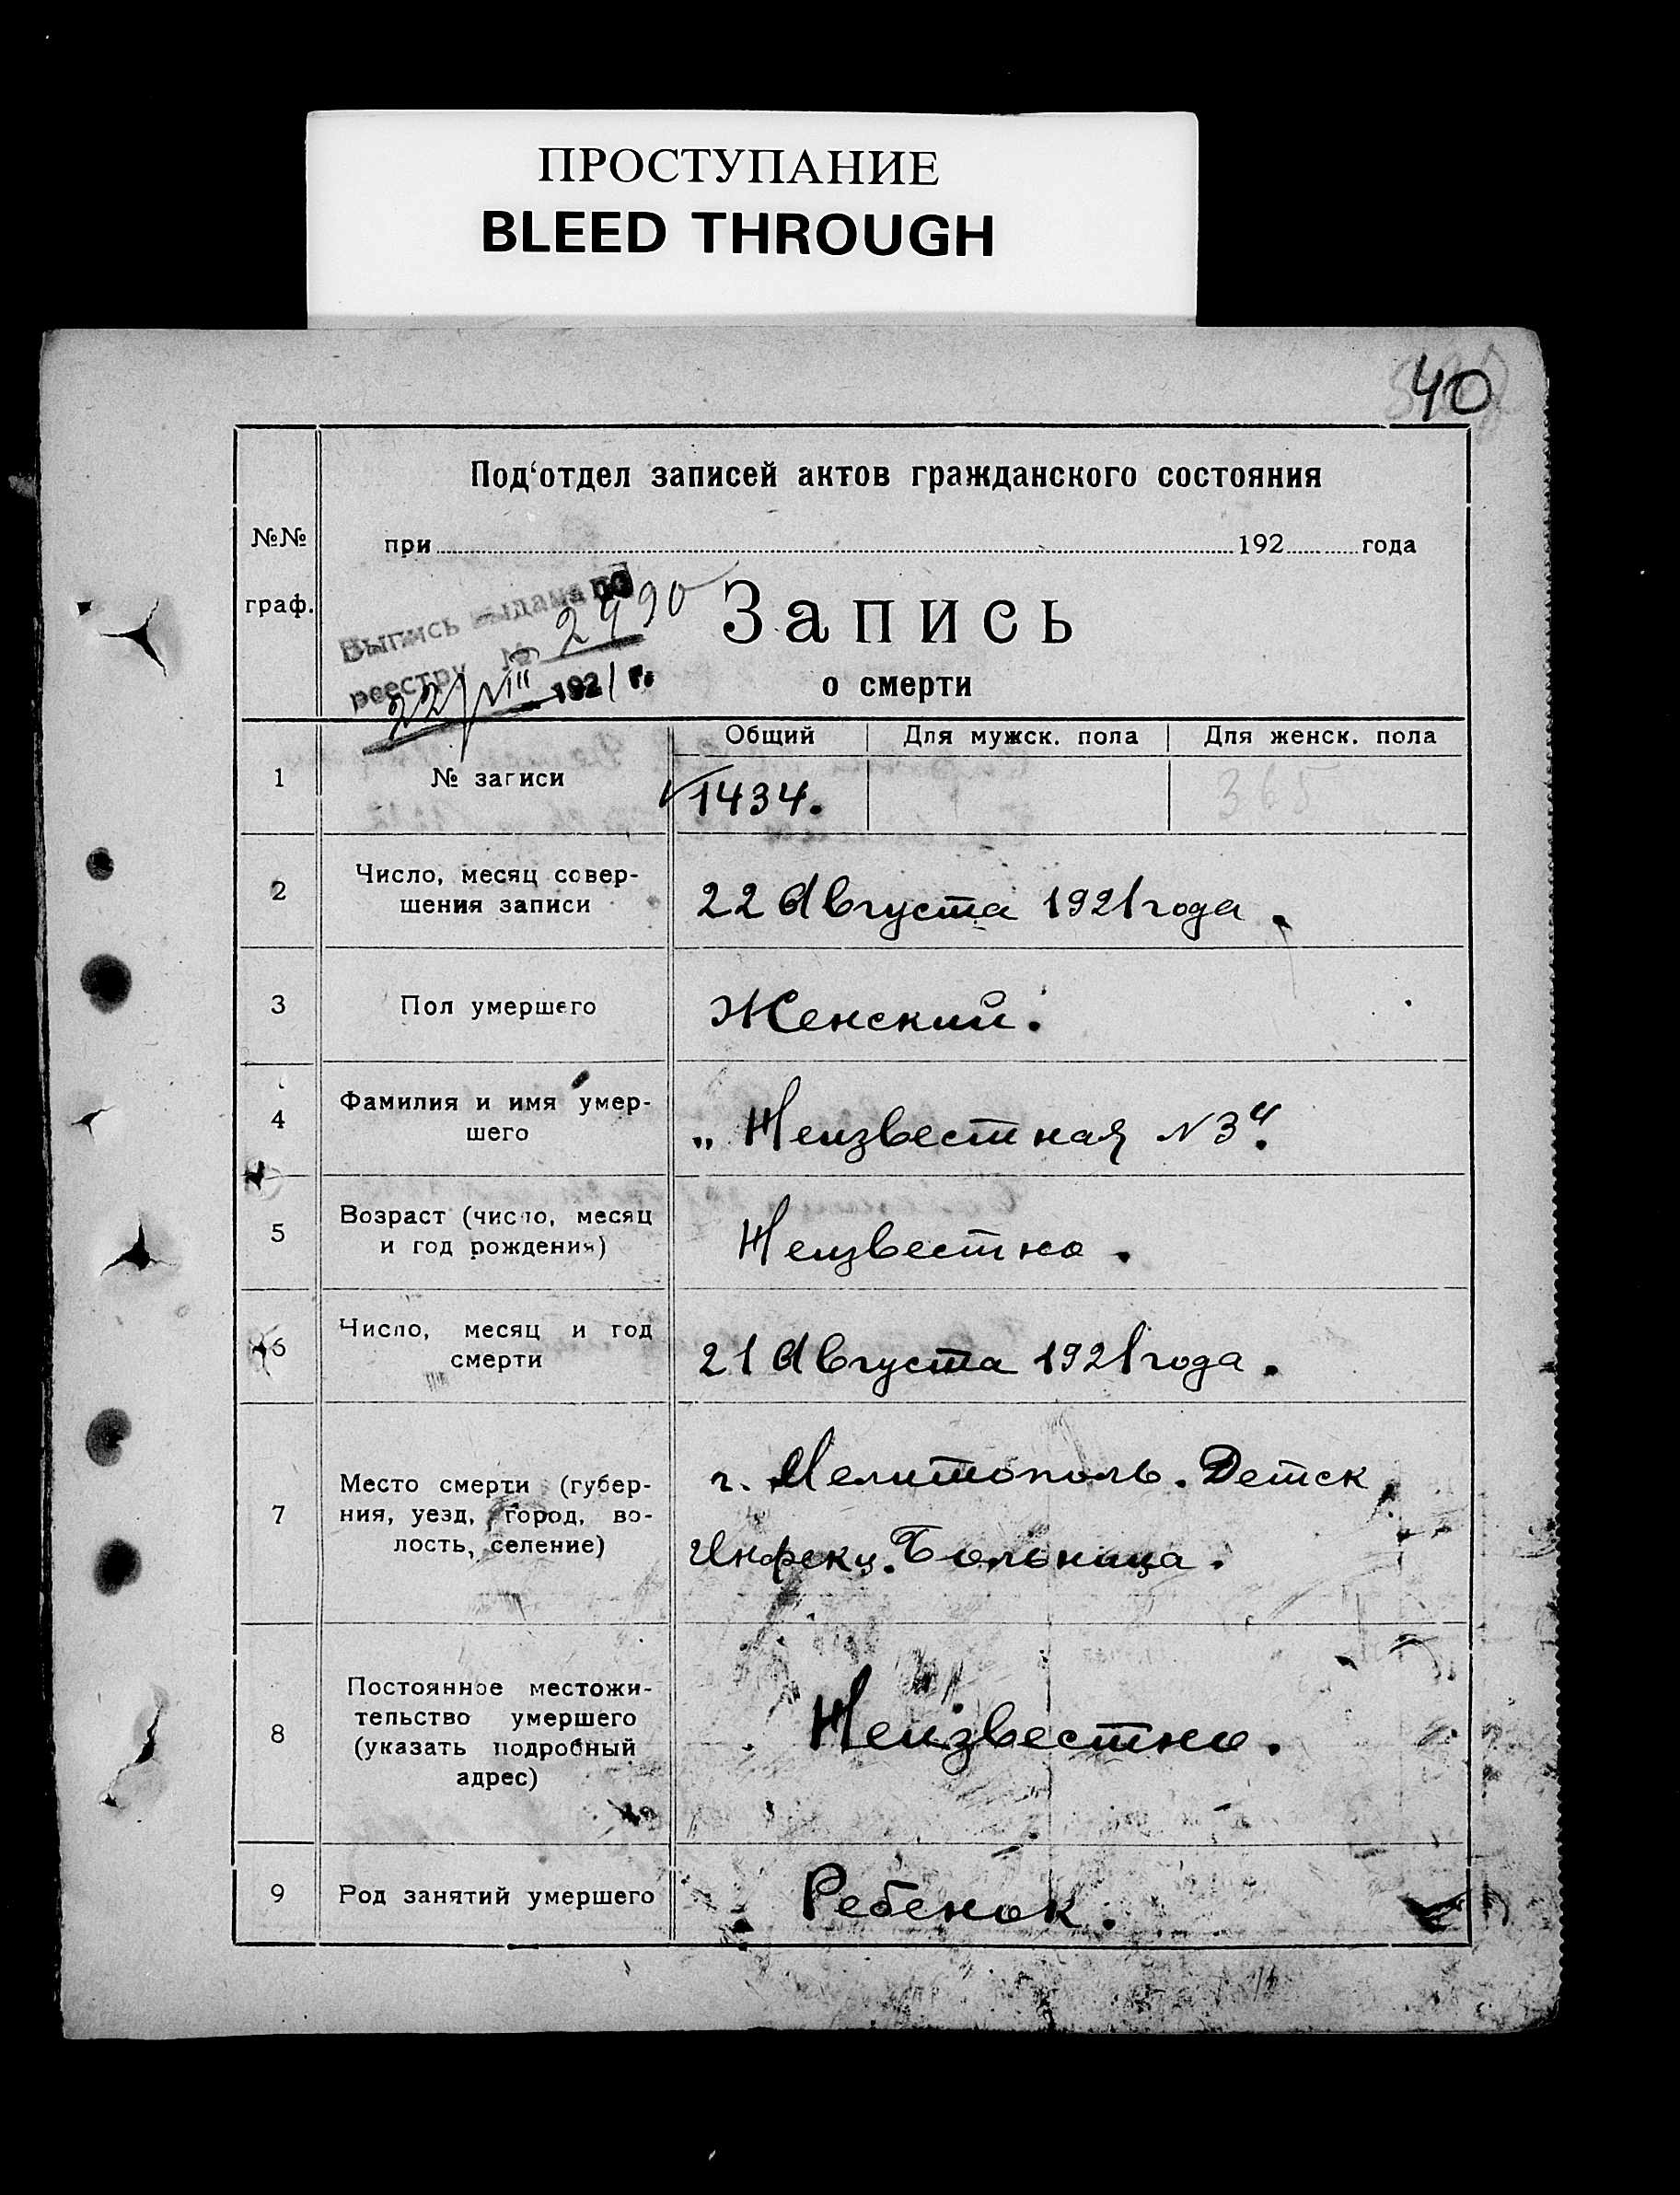 ПРОСТУПАНИЕ
BLEED THROUGH
40
Под'отдел записей актов гражданского состояния
№№
граф.
при 192 года
Выпись выдана по
реестру № 2490
22/VIII 1921 г.
Запись
о смерти
Общий Для мужск. пола Для женск. пола
1 № записи 1434. 365
2 Число, месяц совер-
шения записи
22 Августа 1921 года.
3 Пол умершего Женский.
4 Фамилия и имя умер-
шего
„Неизвестная N3“.
5 Возраст (число, месяц
и год рождения)
Неизвестно.
6 Число, месяц и год
смерти
21 Августа 1921 года.
7 Место смерти (губер-
ния, уезд, город, во-
лость, селение)
г. Мелитополь. Детск.
Инфекц. Больница.
8 Постоянное местожи-
тельство умершего
(указать подробный
адрес)
Неизвестно.
9 Род занятий умершего Ребенок.